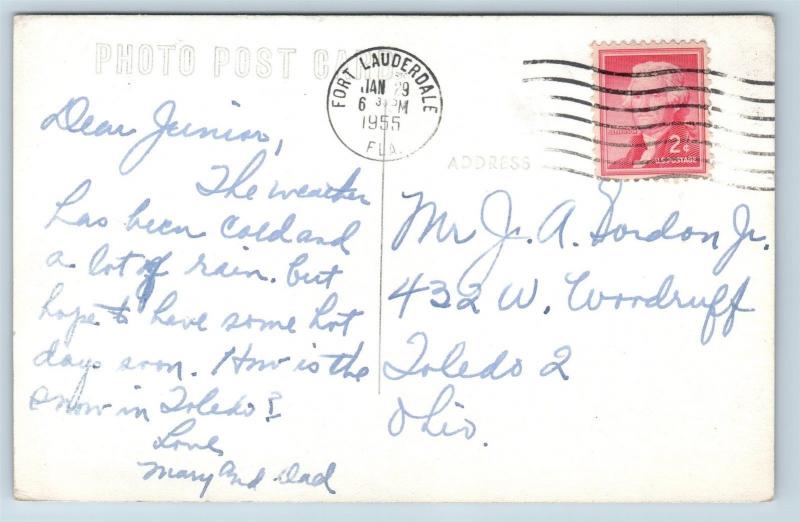 PHOTO POST CARD
FORT LAUDERDALE
JAN 29
6 PM
1955
FLA.
2¢
U.S. POSTAGE
ADDRESS
Dear Junior,
The weather
has been cold and
a lot of rain. but
hope to have some hot
days soon. How is the
snow in Toledo?
Love,
Mary and Dad
Mr J. A. Gordon Jr.
432 W. Woodruff
Toledo 2
Ohio.